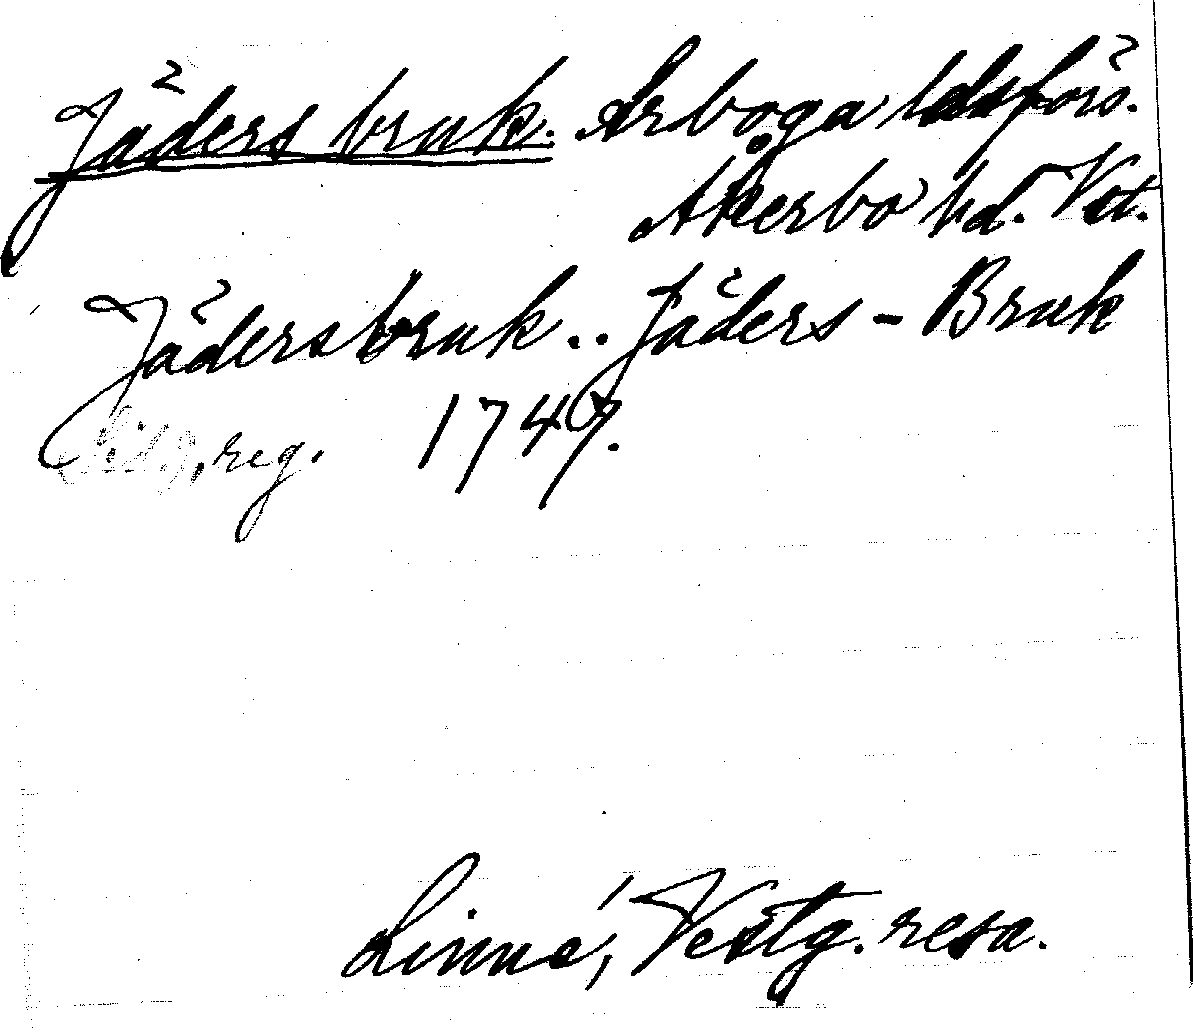 Jäders bruk. Arboga ldsförs.
Åkerbo hd. Vst.
Jädersbruk.. Jäders - Bruk
reg. 1747.
Linné, Vestg. resa.